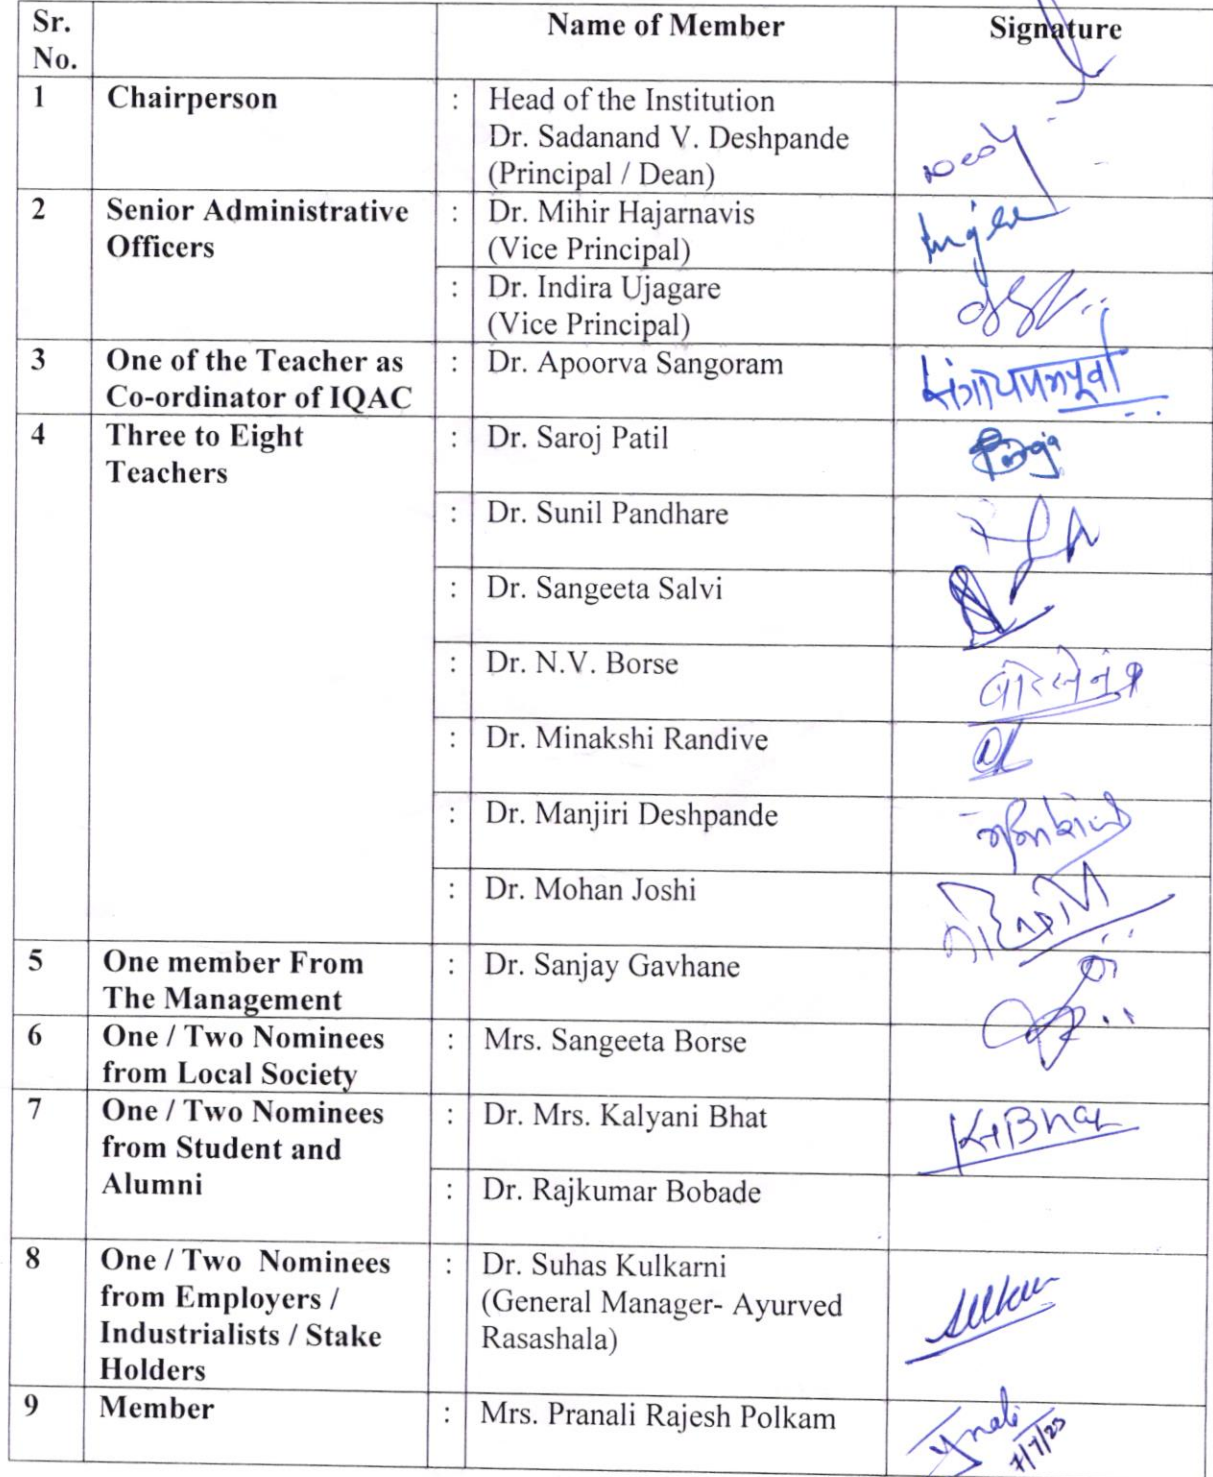 Sr. No. Name of Member Signature
1 Chairperson : Head of the Institution
Dr. Sadanand V. Deshpande
(Principal / Dean)
2 Senior Administrative Officers : Dr. Mihir Hajarnavis
(Vice Principal)
: Dr. Indira Ujagare
(Vice Principal)
3 One of the Teacher as Co-ordinator of IQAC : Dr. Apoorva Sangoram
4 Three to Eight Teachers : Dr. Saroj Patil
: Dr. Sunil Pandhare
: Dr. Sangeeta Salvi
: Dr. N.V. Borse
: Dr. Minakshi Randive
: Dr. Manjiri Deshpande
: Dr. Mohan Joshi
5 One member From The Management : Dr. Sanjay Gavhane
6 One / Two Nominees from Local Society : Mrs. Sangeeta Borse
7 One / Two Nominees from Student and Alumni : Dr. Mrs. Kalyani Bhat
: Dr. Rajkumar Bobade
8 One / Two Nominees from Employers / Industrialists / Stake Holders : Dr. Suhas Kulkarni
(General Manager- Ayurved
Rasashala)
9 Member : Mrs. Pranali Rajesh Polkam
7/7/23